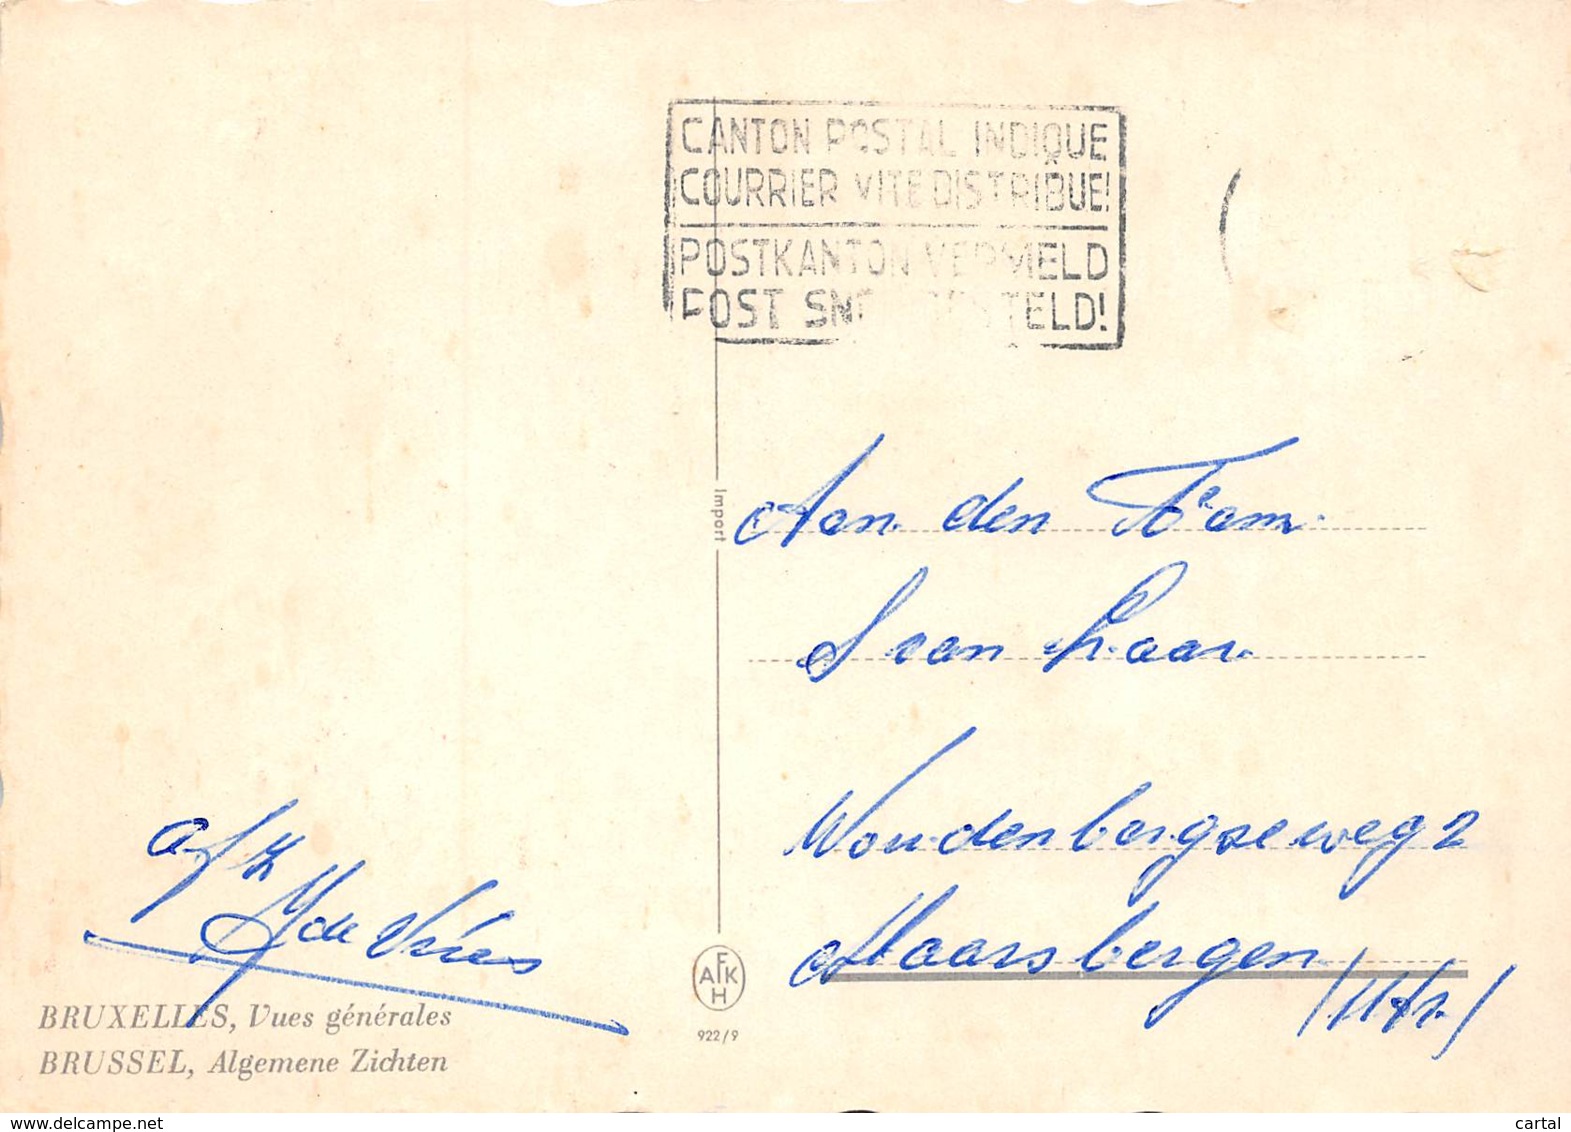 CANTON POSTAL INDIQUÉ
COURRIER VITE DISTRIBUE!
POSTKANTON VERMELD
POST SNEL BESTELD!
Import
Aan den Fam.
S van Laar
Woudenbergseweg 2
Maarsbergen
/Utr./
afz
Y de Vries
BRUXELLES, Vues générales
BRUSSEL, Algemene Zichten
AFKH
922/9
cartal